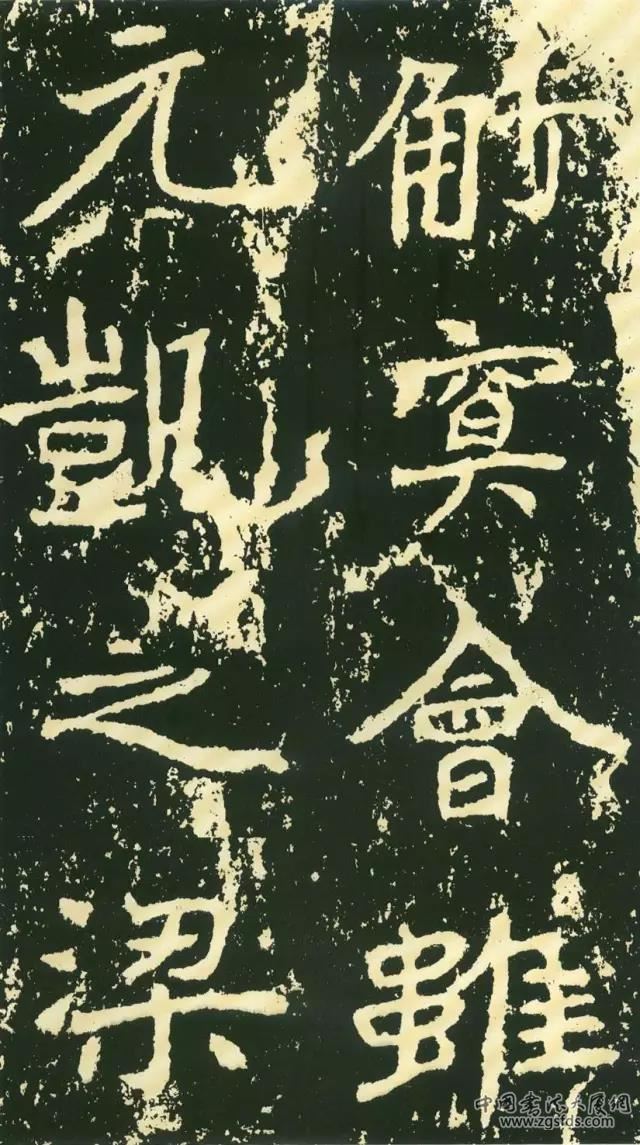 解寘會雖
元凱之梁
中国书法大展网
www.zgsfds.com